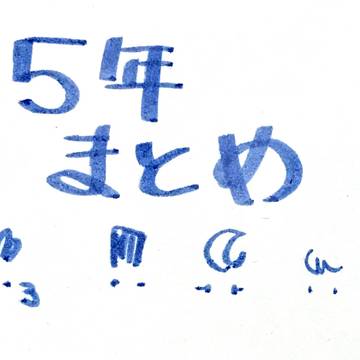 5年
まとめ